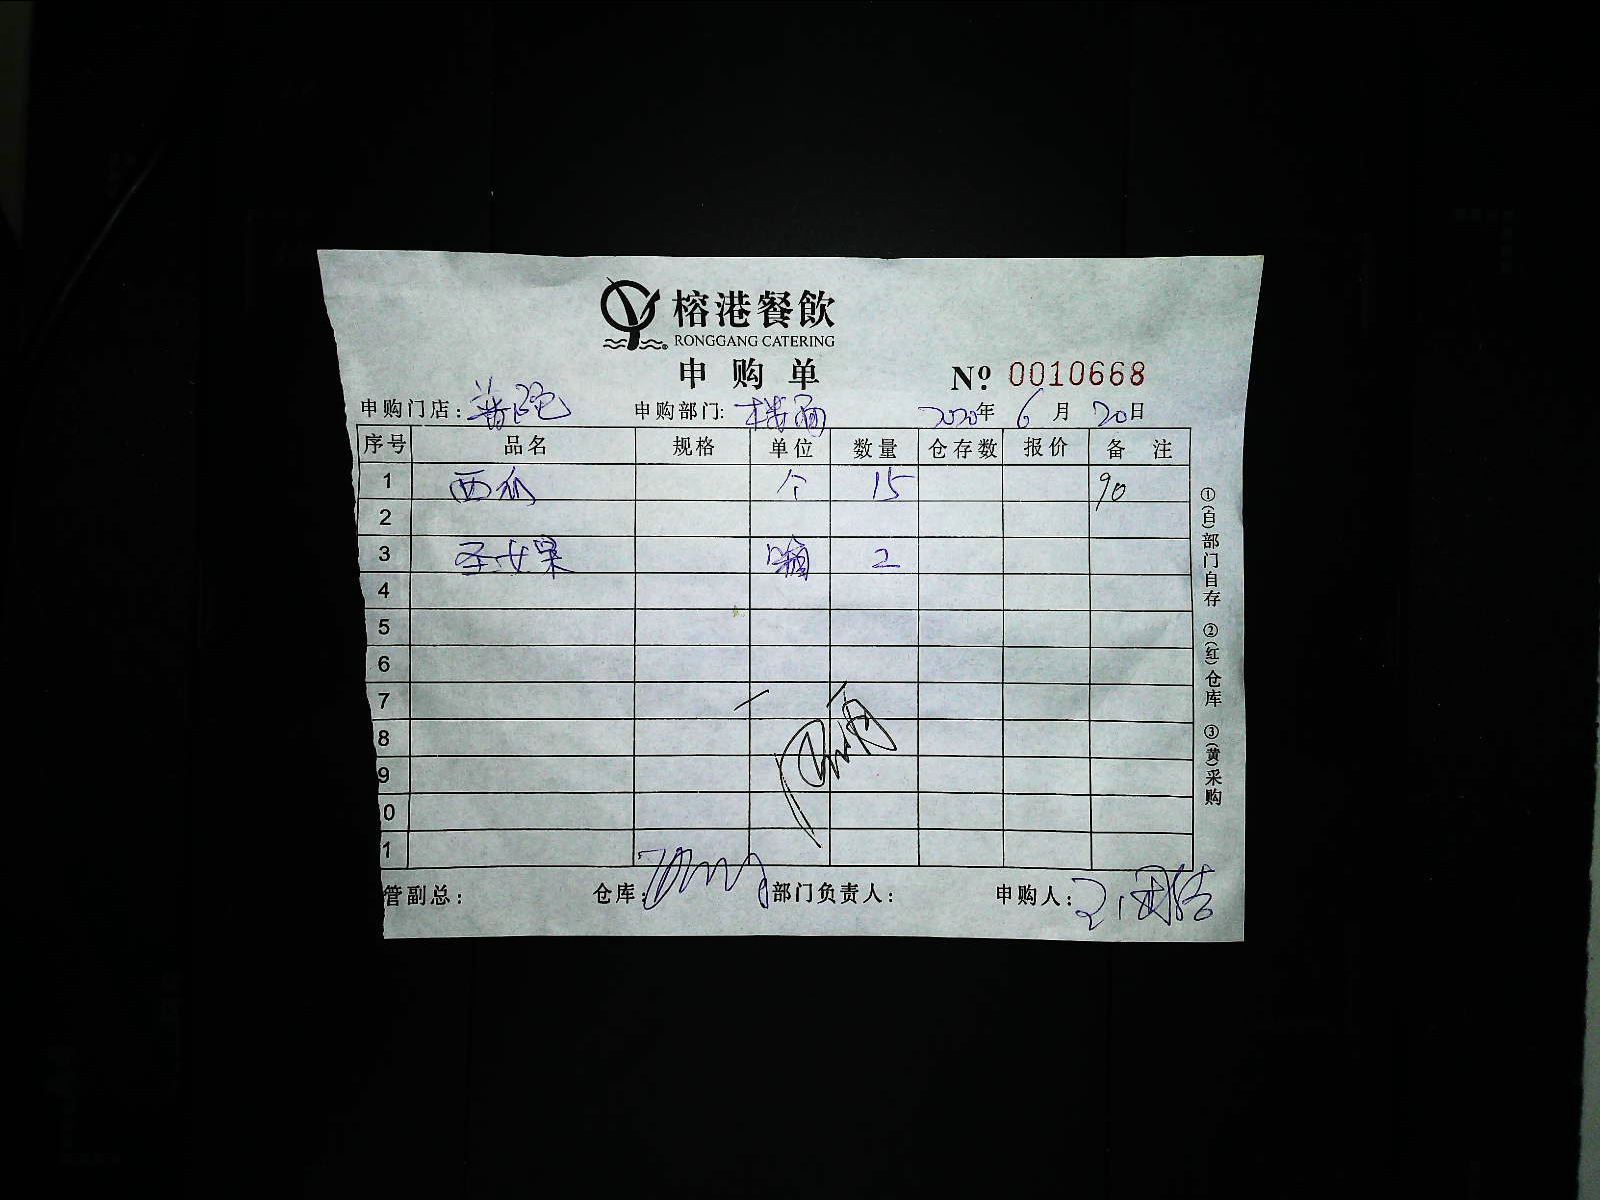 榕港餐飲
RONGGANG CATERING
申购单 Nº 0010668
申购门店：普陀 申购部门：楼面 2020年 6月 20日
序号 品名 规格 单位 数量 仓存数 报价 备注
1 西瓜 个 15 90
2
3 圣女果 箱 2
4
5
6
7
8
9
0
1
管副总： 仓库： 部门负责人： 申购人：
①(白)部门自存 ②(红)仓库 ③(黄)采购